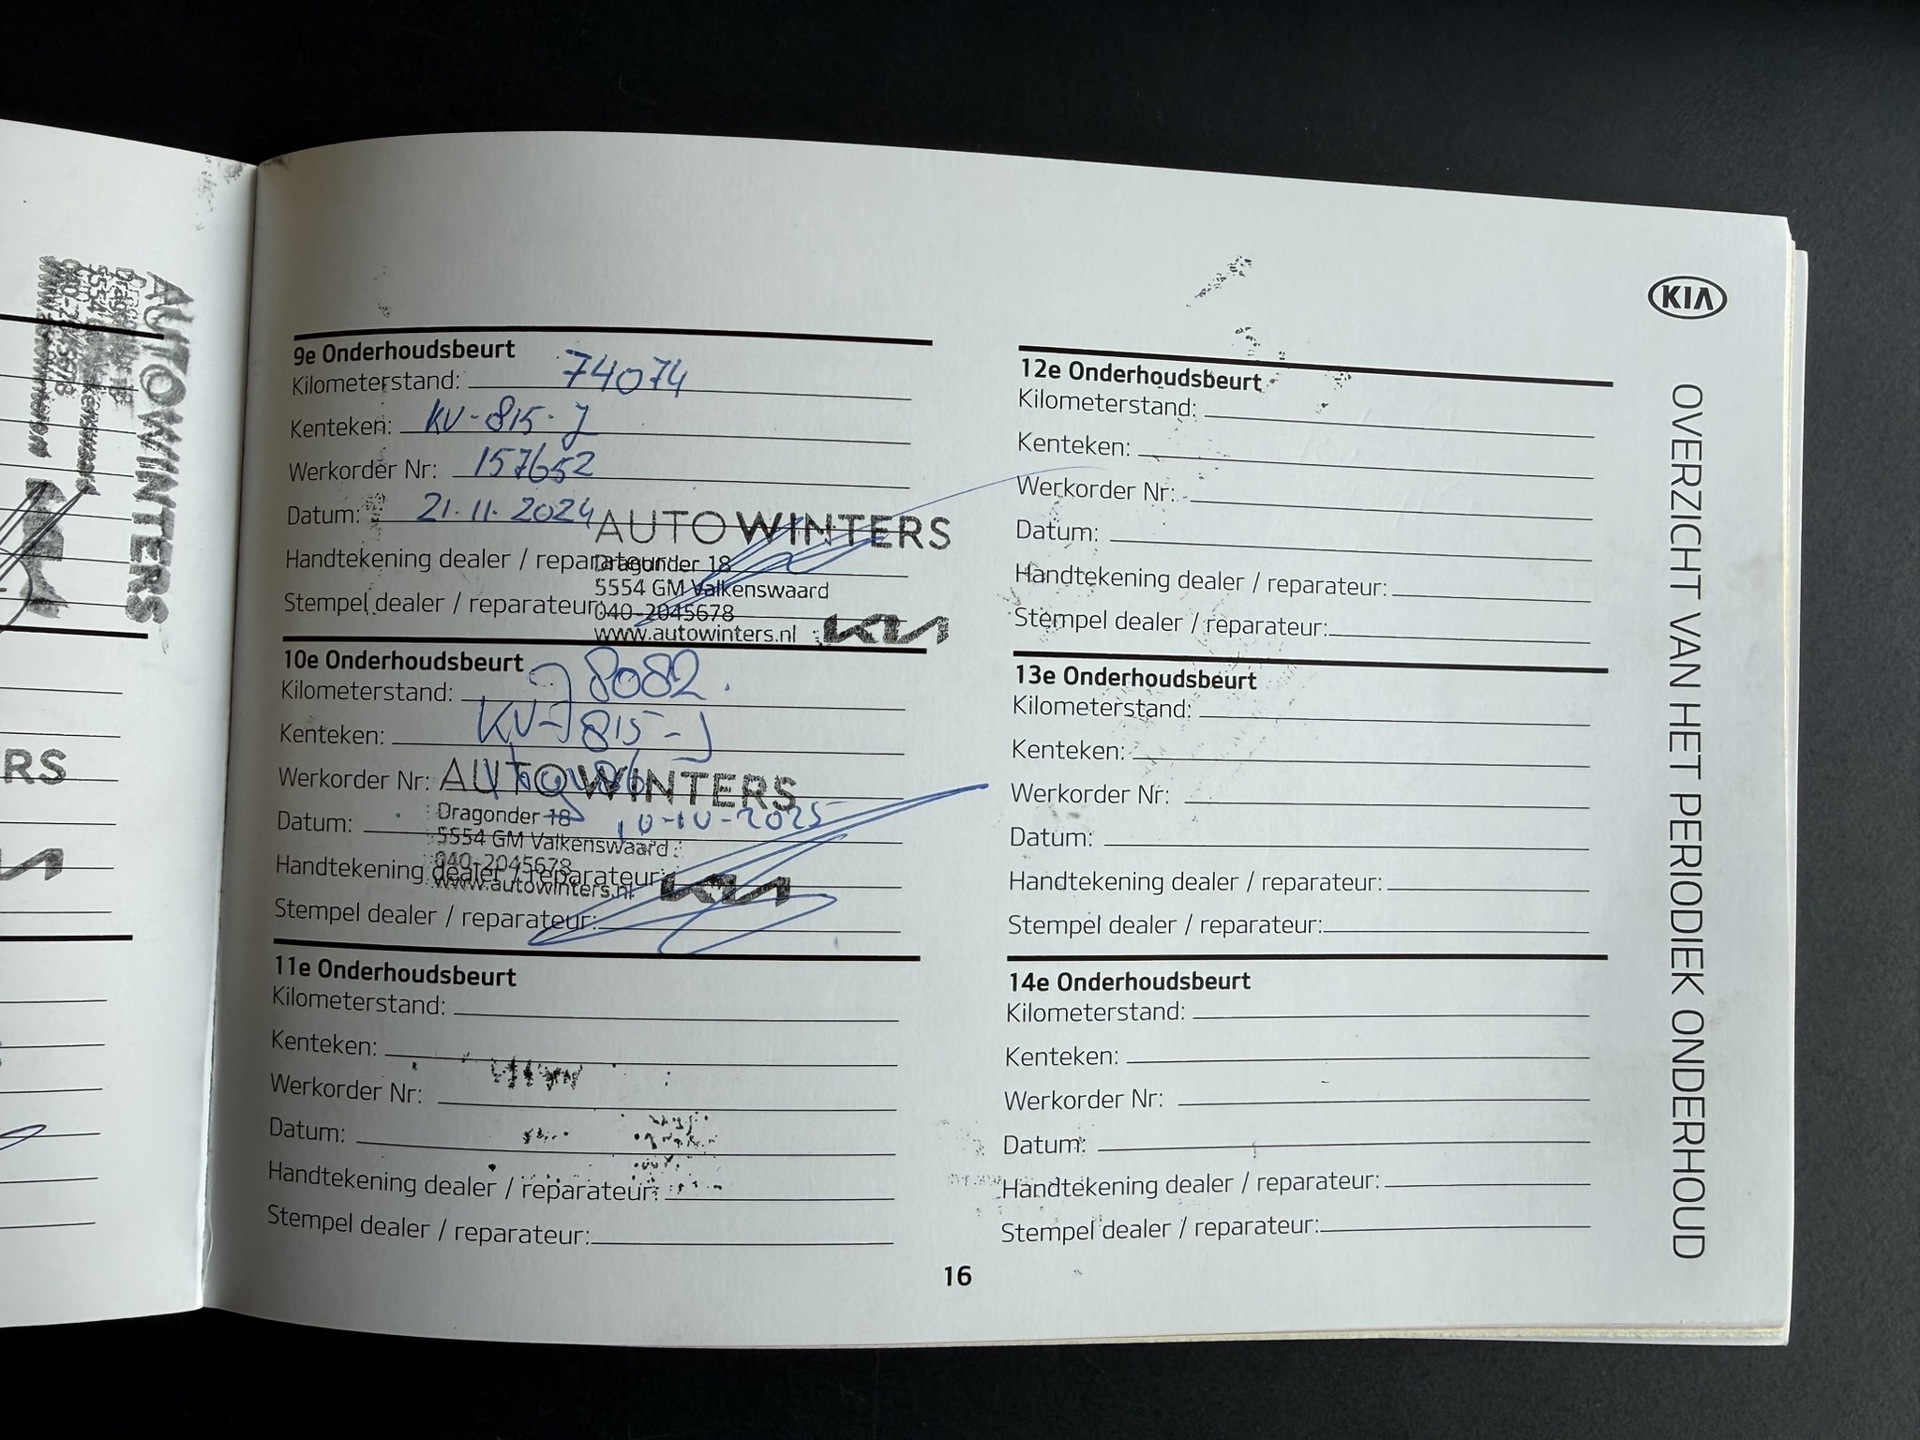 AUTOWINTERS
RS
9e Onderhoudsbeurt
Kilometerstand: 74074
Kenteken: KV-815-J
Werkorder Nr: 157652
Datum: 21.11.2024
Handtekening dealer / reparateur:
Stempel dealer / reparateur:
AUTOWINTERS
Dragonder 18
5554 GM Valkenswaard
040-2045678
www.autowinters.nl
KIA
10e Onderhoudsbeurt
Kilometerstand: 78082.
Kenteken: KV-815-J
Werkorder Nr:
Datum: 10-10-2025
Handtekening dealer / reparateur:
Stempel dealer / reparateur:
AUTOWINTERS
Dragonder 18
5554 GM Valkenswaard
040-2045678
www.autowinters.nl
KIA
11e Onderhoudsbeurt
Kilometerstand:
Kenteken:
Werkorder Nr:
Datum:
Handtekening dealer / reparateur:
Stempel dealer / reparateur:
12e Onderhoudsbeurt
Kilometerstand:
Kenteken:
Werkorder Nr:
Datum:
Handtekening dealer / reparateur:
Stempel dealer / reparateur:
13e Onderhoudsbeurt
Kilometerstand:
Kenteken:
Werkorder Nr:
Datum:
Handtekening dealer / reparateur:
Stempel dealer / reparateur:
14e Onderhoudsbeurt
Kilometerstand:
Kenteken:
Werkorder Nr:
Datum:
Handtekening dealer / reparateur:
Stempel dealer / reparateur:
KIA
OVERZICHT VAN HET PERIODIEK ONDERHOUD
16